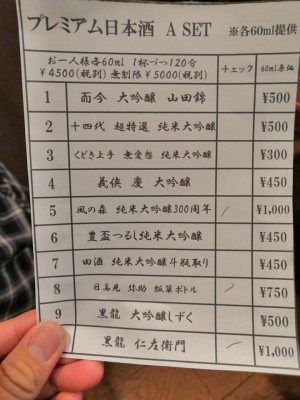 プレミアム日本酒 A SET ※各60ml提供
お一人様各60ml 1杯づつ120分
¥4500(税別) 無制限¥5000(税別) チェック 60ml原価
1 而今 大吟醸 山田錦 ¥500
2 十四代 超特選 純米大吟醸 ¥500
3 くどき上手 無愛想 純米大吟醸 ¥300
4 義侠 慶 大吟醸 ¥450
5 風の森 純米大吟醸300周年 ¥1,000
6 豊盃つるし純米大吟醸 ¥450
7 田酒 純米大吟醸斗瓶取り ¥450
8 日高見 弥助 瓢箪ボトル ¥750
9 黒龍 大吟醸しずく ¥500
黒龍 仁左衛門 ¥1,000